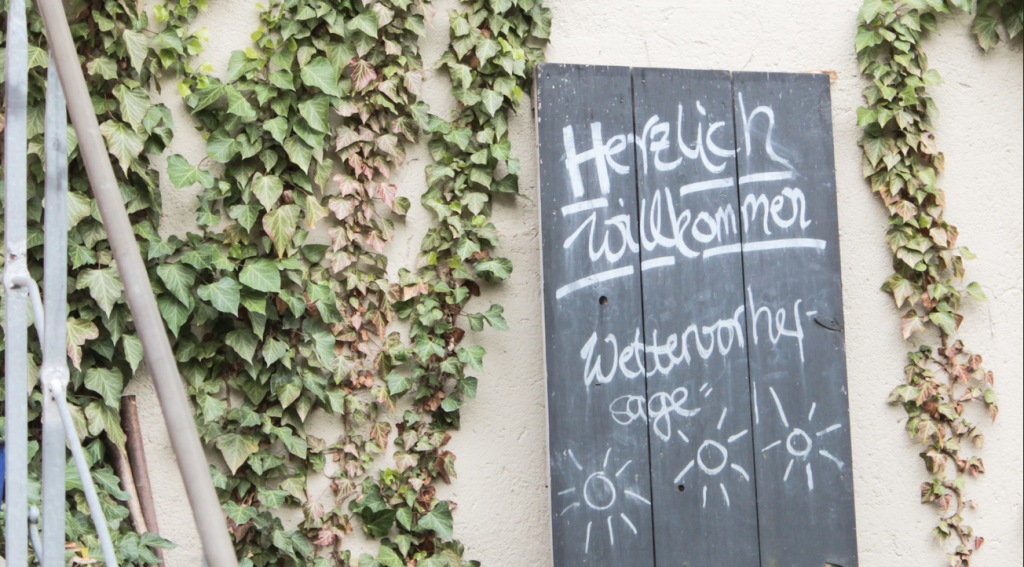 Herzlich
Willkommen
Wettervorher-
sage"